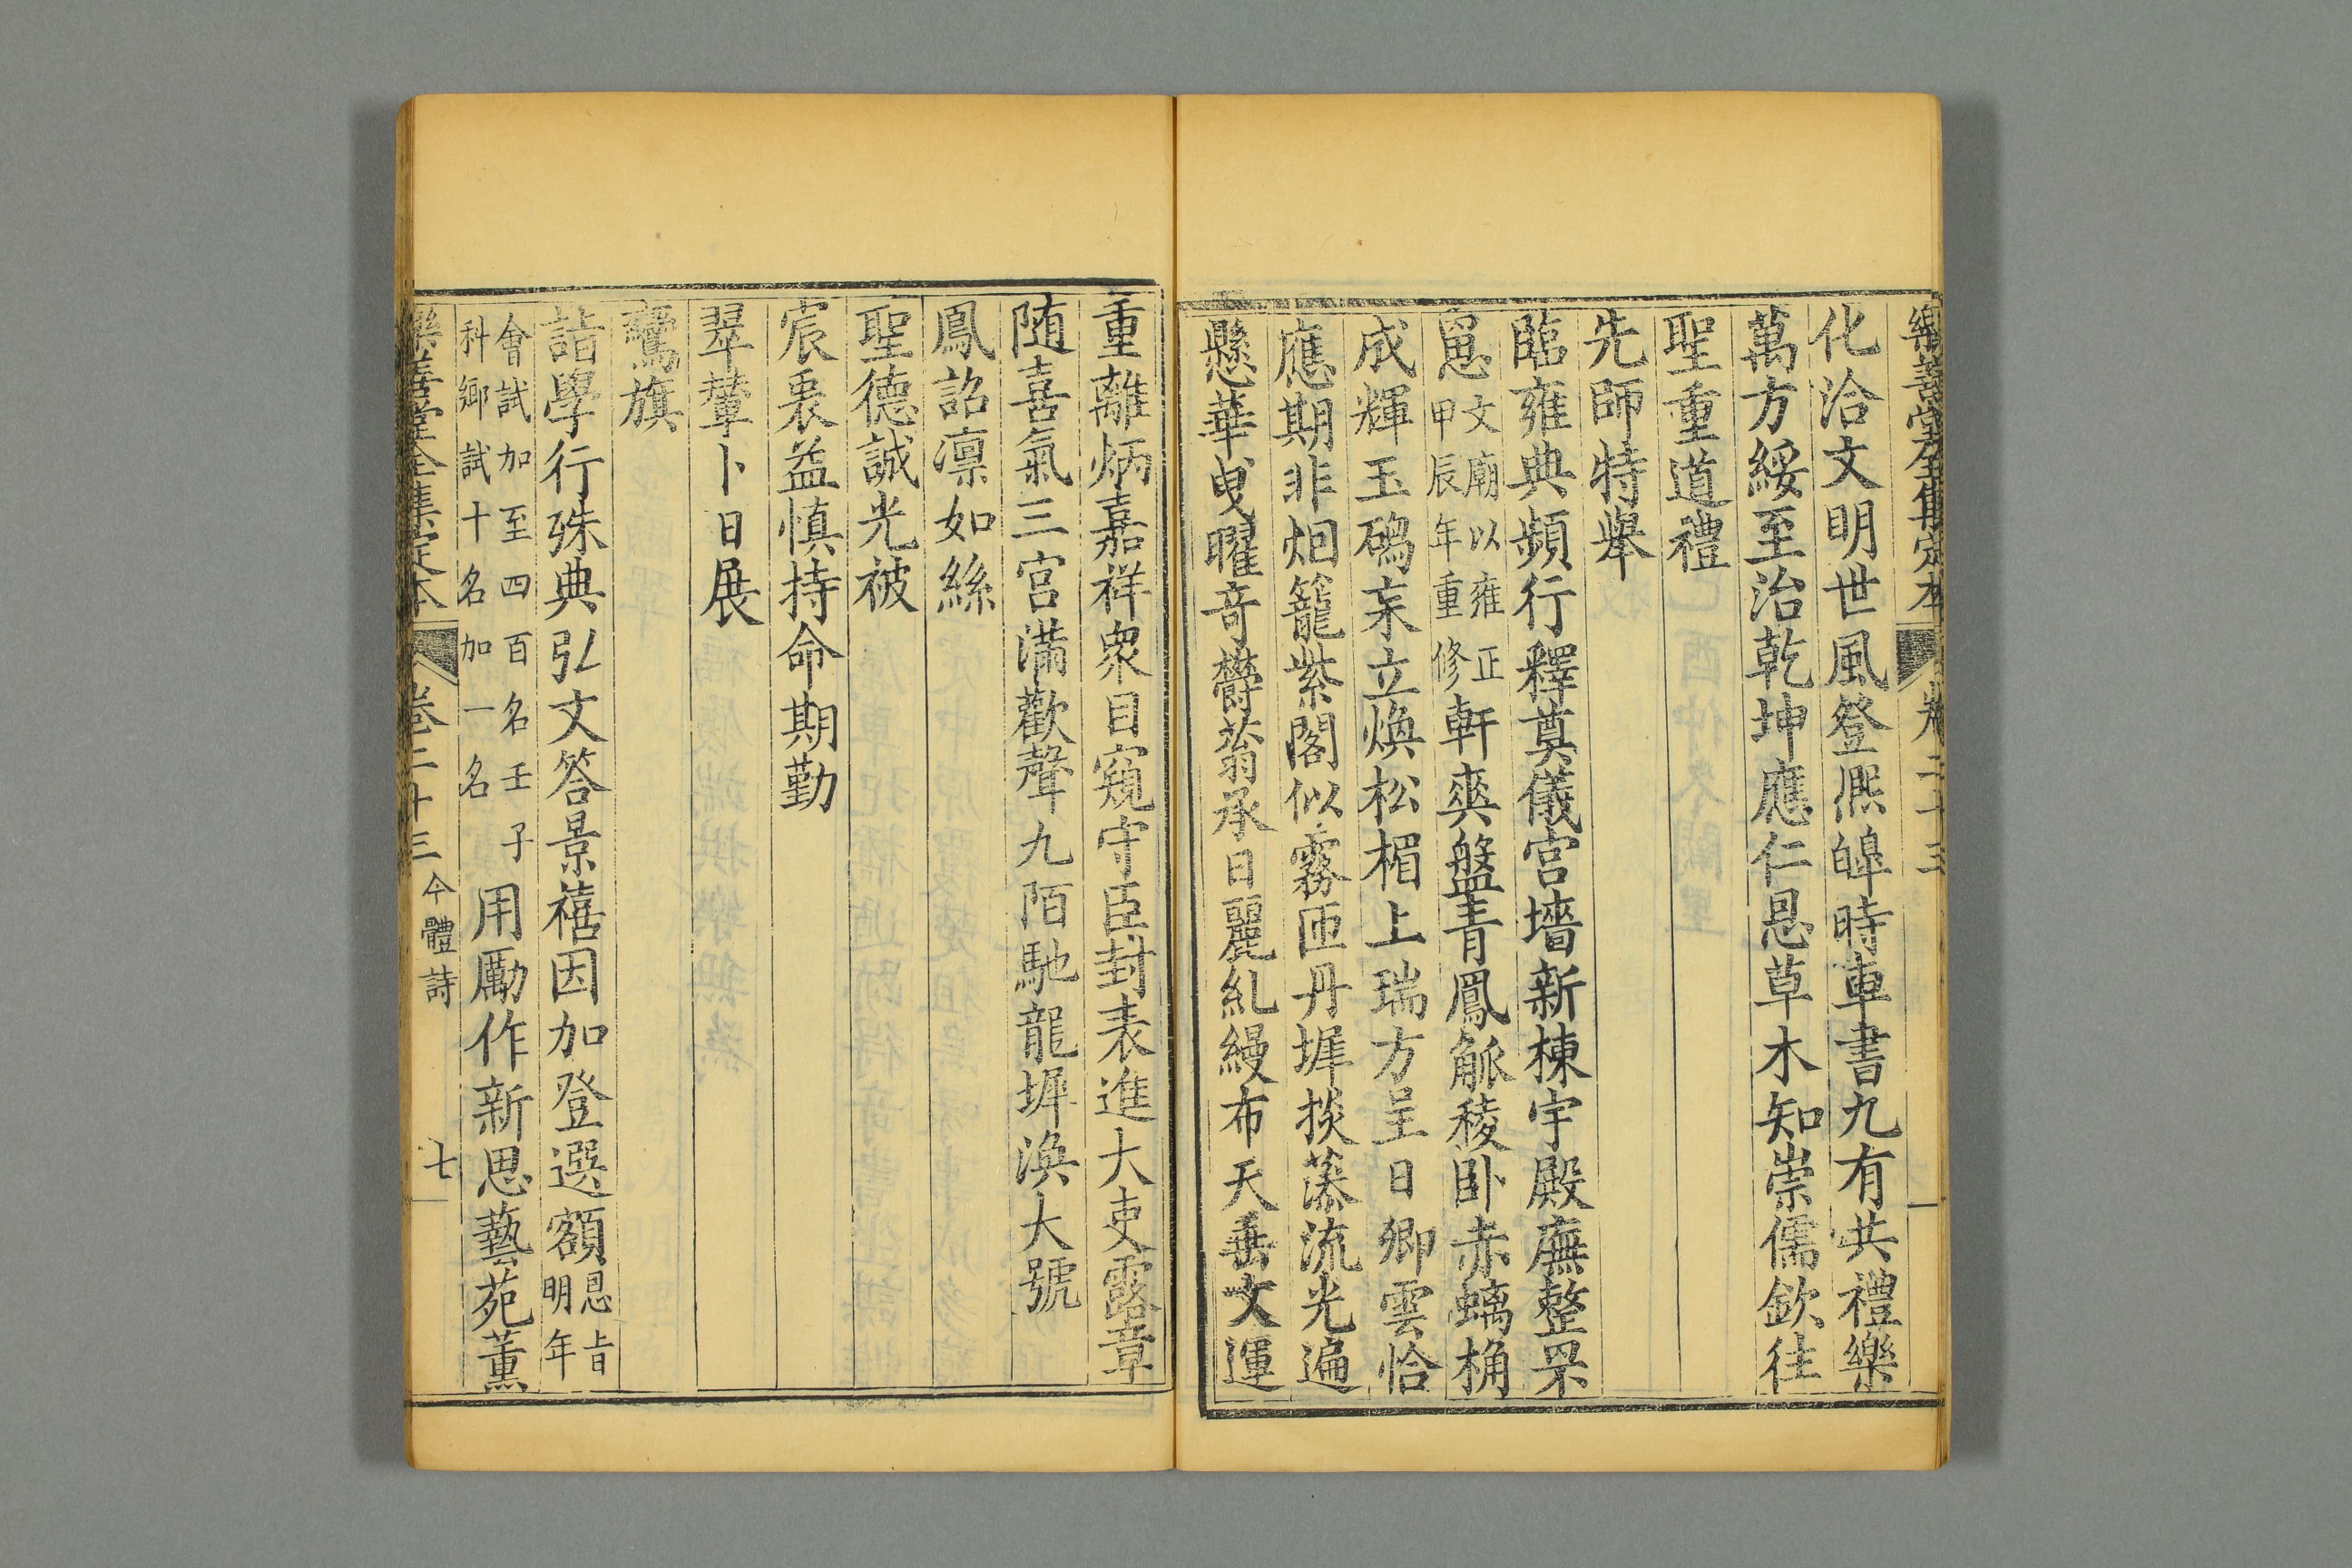 樂善堂全集定本 卷二十三
化洽文明世風登熈皥時車書九有共禮樂
萬方綏至治乾坤應仁恩草木知崇儒欽往
聖重道禮
先師特舉
臨雍典頻行釋奠儀宫墻新棟宇殿廡整罘
罳文廟以雍正甲辰年重修軒爽盤青鳳觚稜卧赤螭桷
成輝玉磶杗立煥松楣上瑞方呈日卿雲恰
應期非烟籠紫閣似霧匝丹墀掞藻流光遍
懸華曳曜竒欝蓊承日麗糺縵布天垂文運
重離炳嘉祥衆目窺守臣封表進大吏露章
随喜氣三宫滿歡聲九陌馳龍墀渙大號
鳳詔凛如絲
聖德誠光被
宸衷益慎持命期勤
翠輦卜日展
鸞旗
詣學行殊典弘文答景禧因加登選額恩旨明年
會試加至四百名壬子科鄉試十名加一名用勵作新思藝苑薫
樂善堂全集定本 卷二十三 今體詩 七